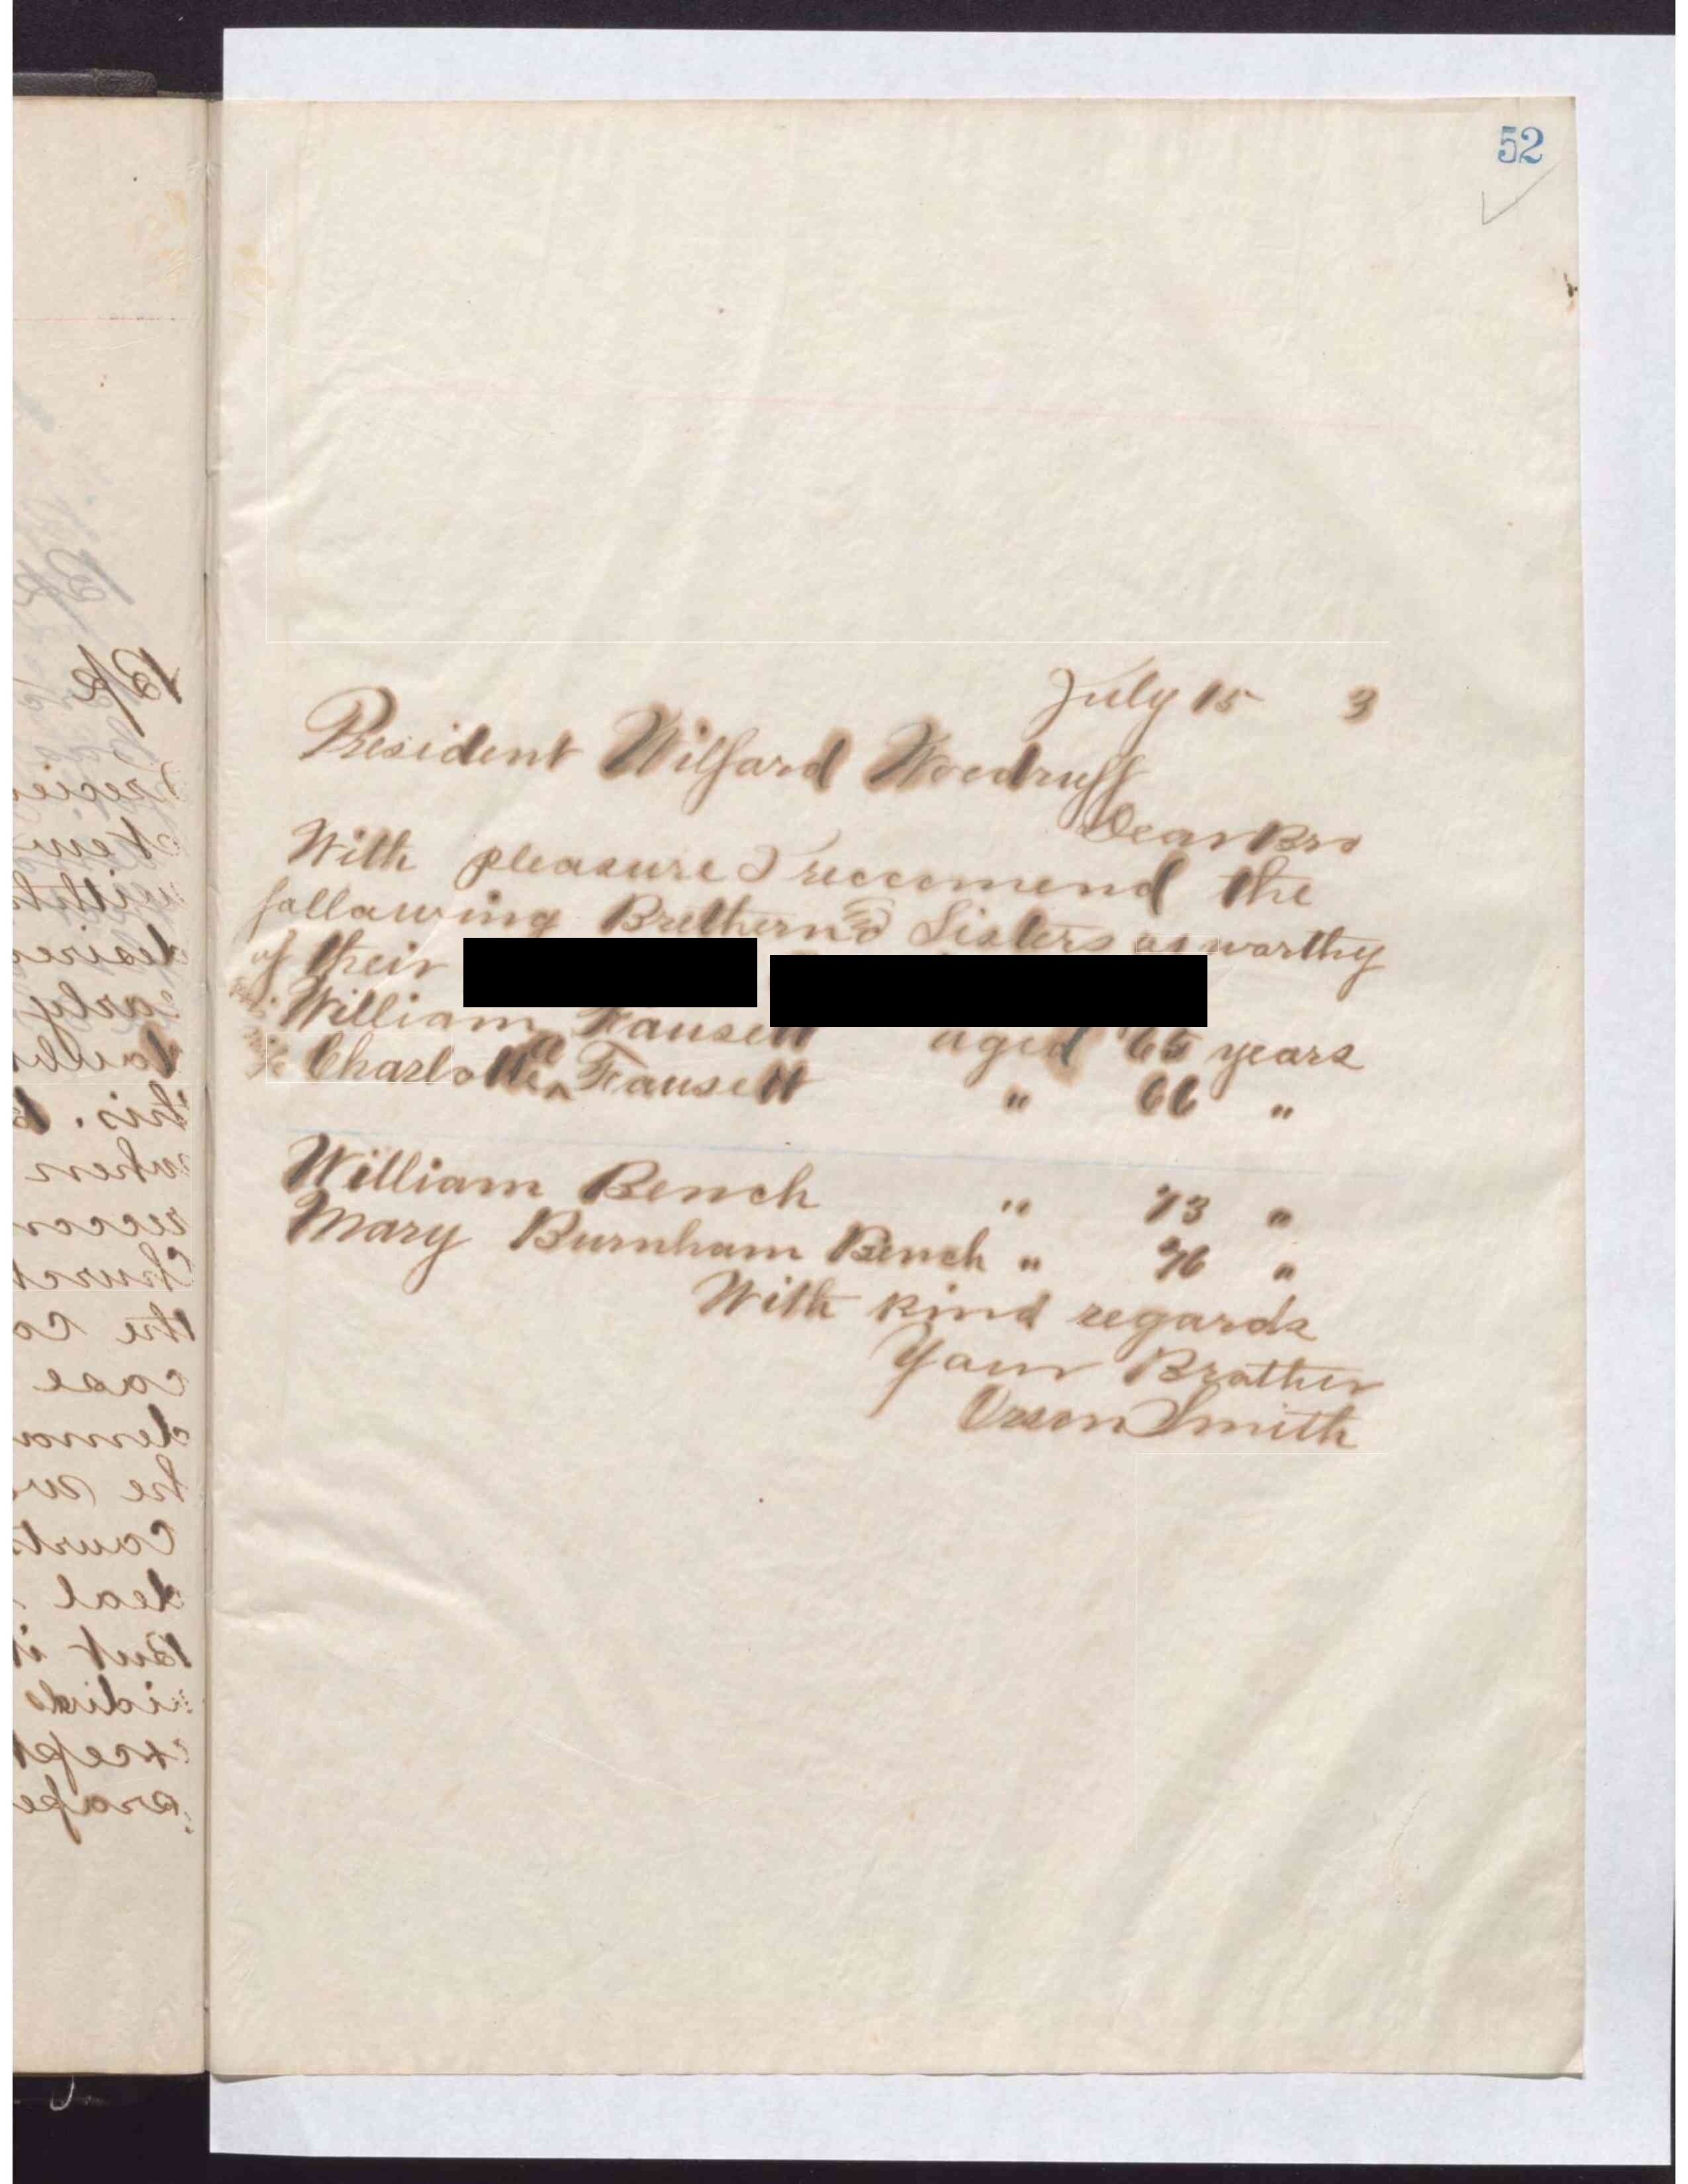 52
July 15 3
President Wilford Woodruff
Dear Bro
With pleasure I reccomend the
following Brethern & Sisters as worthy
of their
William Fausett aged 65 years
Charlotte A Fausett " 66 "
William Bench " 73 "
Mary Burnham Bench " 76 "
With kind regards
Your Brother
Orson Smith